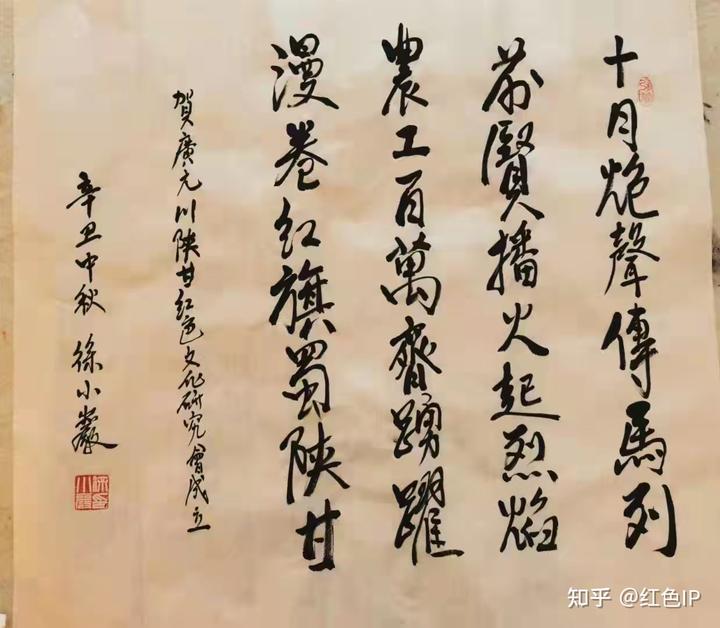 十月炮聲傳馬列
前賢播火起烈焰
農工百萬齊踴躍
漫卷红旗蜀陝甘
賀廣元川陕甘红色文化研究會成立
辛丑中秋 徐小巖
知乎 @红色IP